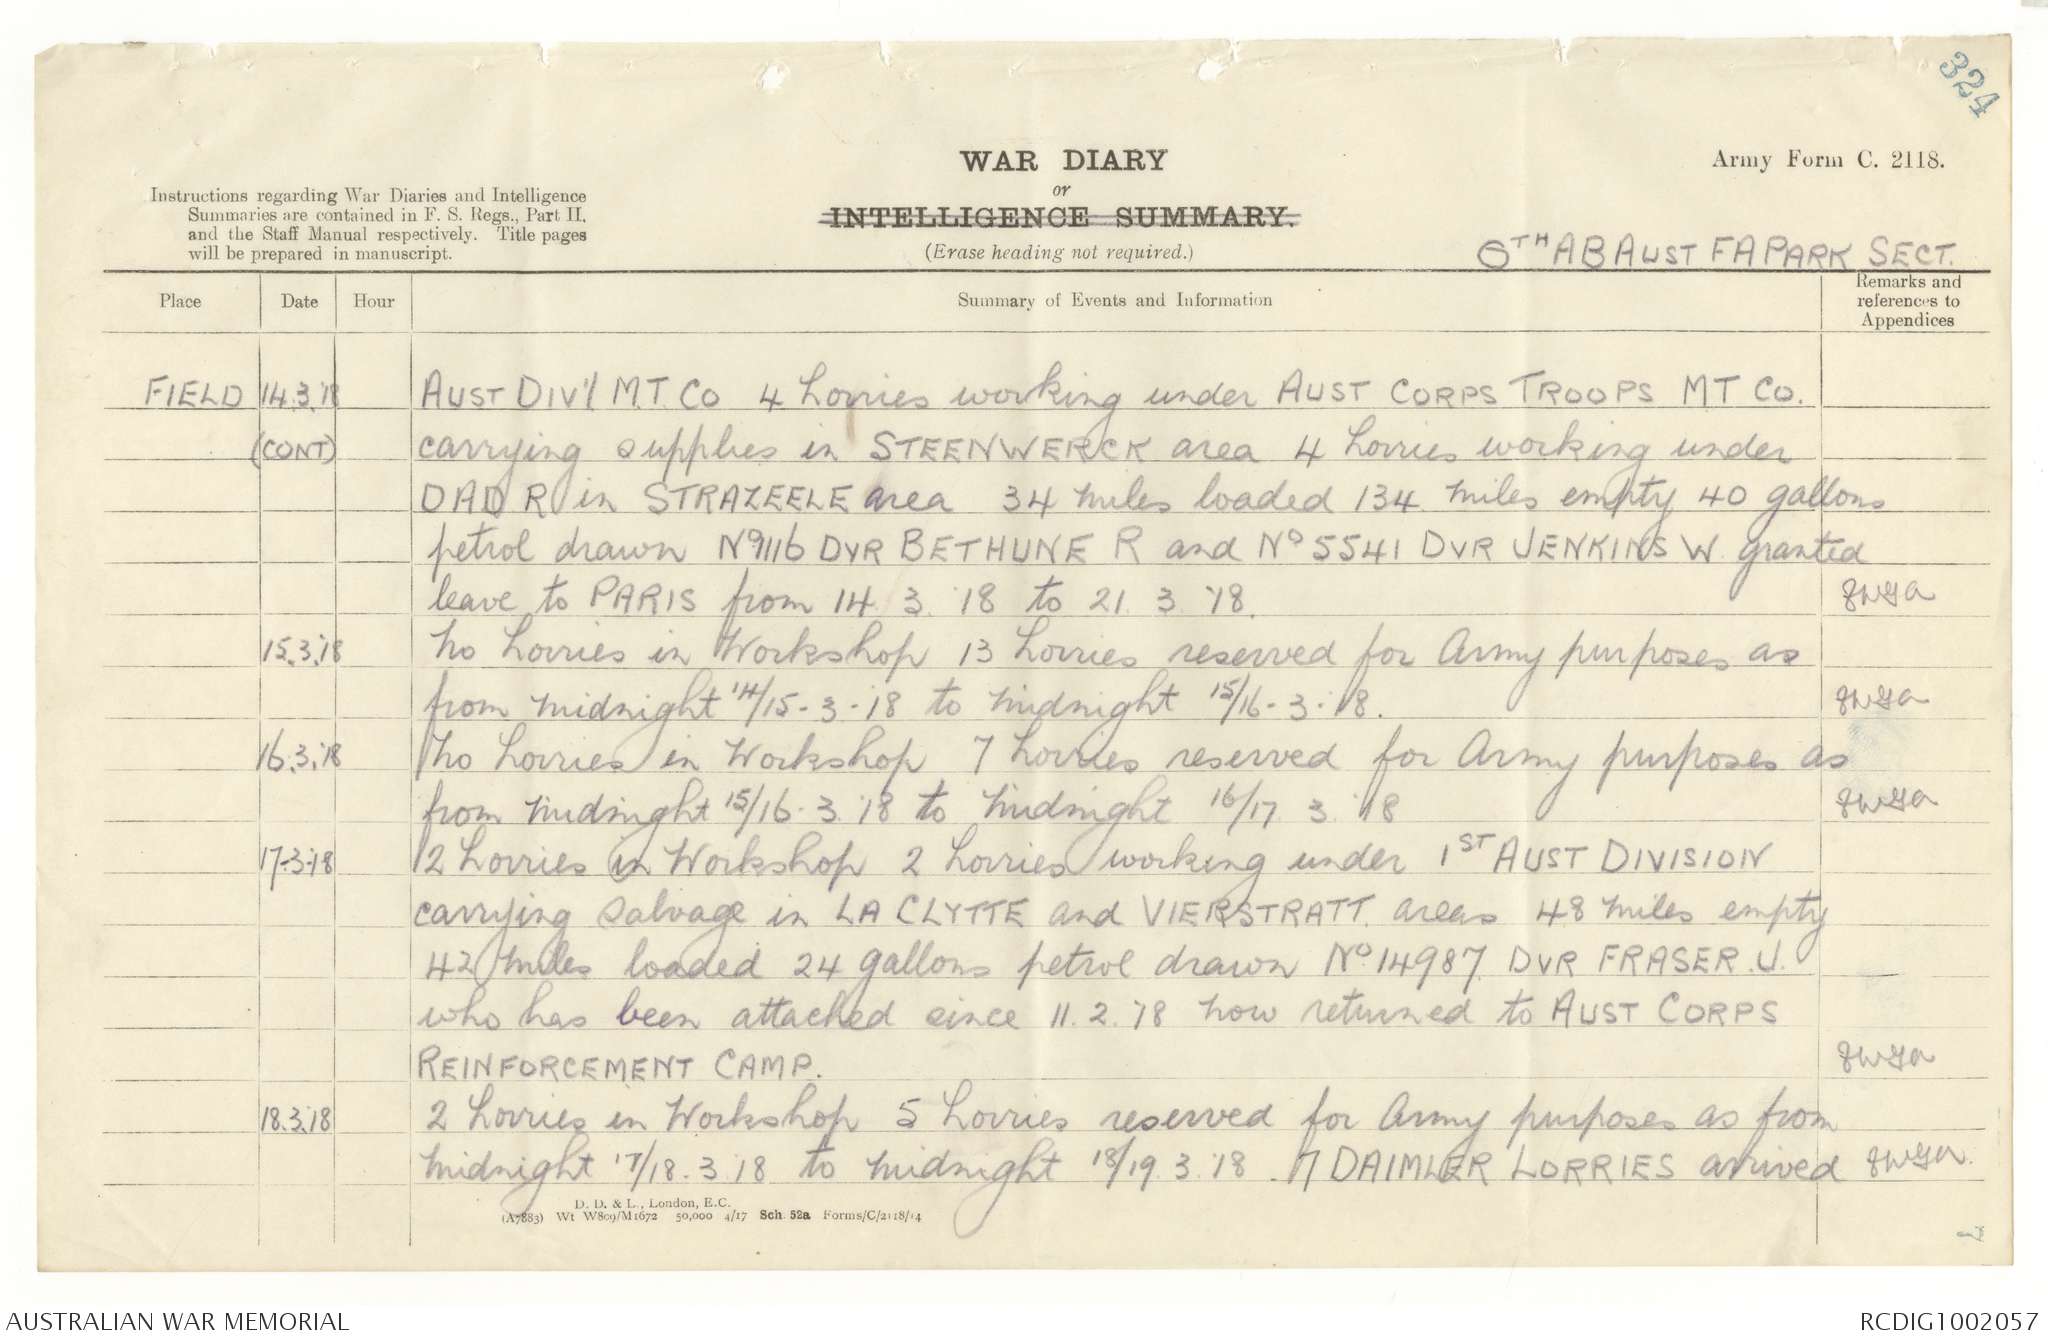 324
WAR DIARY
or
INTELLIGENCE SUMMARY.
(Erase heading not required.)
Army Form C. 2118.
Instructions regarding War Diaries and Intelligence
Summaries are contained in F. S. Regs., Part II.
and the Staff Manual respectively. Title pages
will be prepared in manuscript.
6TH AB AUST FA PARK SECT.
Place Date Hour Summary of Events and Information Remarks and references to Appendices
FIELD 14.3.'18 AUST DIV'L M.T. CO 4 Lorries working under AUST CORPS TROOPS MT CO.
(CONT) carrying supplies in STEENWERCK area 4 Lorries working under
DADR in STRAZEELE area 34 miles loaded 134 miles empty 40 gallons
petrol drawn No 9116 DVR BETHUNE R and No 5541 DVR JENKINS W. granted
leave to PARIS from 14. 3. '18 to 21. 3. '18.
15.3.'18 No Lorries in Workshop 13 Lorries reserved for Army purposes as
from midnight 14/15-3-'18 to midnight 15/16-3-'18.
16.3.'18 No Lorries in Workshop 7 Lorries reserved for Army purposes as
from midnight 15/16-3.'18 to midnight 16/17. 3. '18
17-3-'18 2 Lorries in Workshop 2 Lorries working under 1ST AUST DIVISION
carrying salvage in LA CLYTTE and VIERSTRATT. areas 48 miles empty
42 miles loaded 24 gallons petrol drawn No 14987. DVR FRASER. J.
who has been attached since 11.2.'18 now returned to AUST CORPS
REINFORCEMENT CAMP.
18.3.'18 2 Lorries in Workshop 5 Lorries reserved for Army purposes as from
midnight 17/18.3.'18 to midnight 18/19.3.'18. 7 DAIMLER LORRIES arrived
D. D. & L., London, E.C.
(A7883) Wt W809/M1672 50,000 4/17 Sch. 52a Forms/C/2118/14
AUSTRALIAN WAR MEMORIAL RCDIG1002057